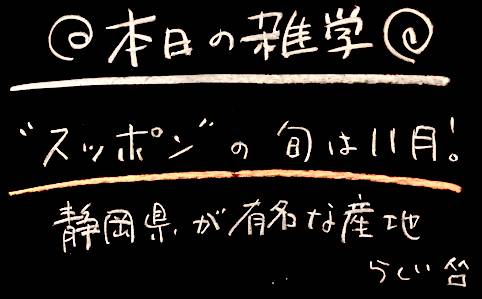 @本日の雑学@
“スッポン”の旬は11月!
静岡県が有名な産地
らしい笑